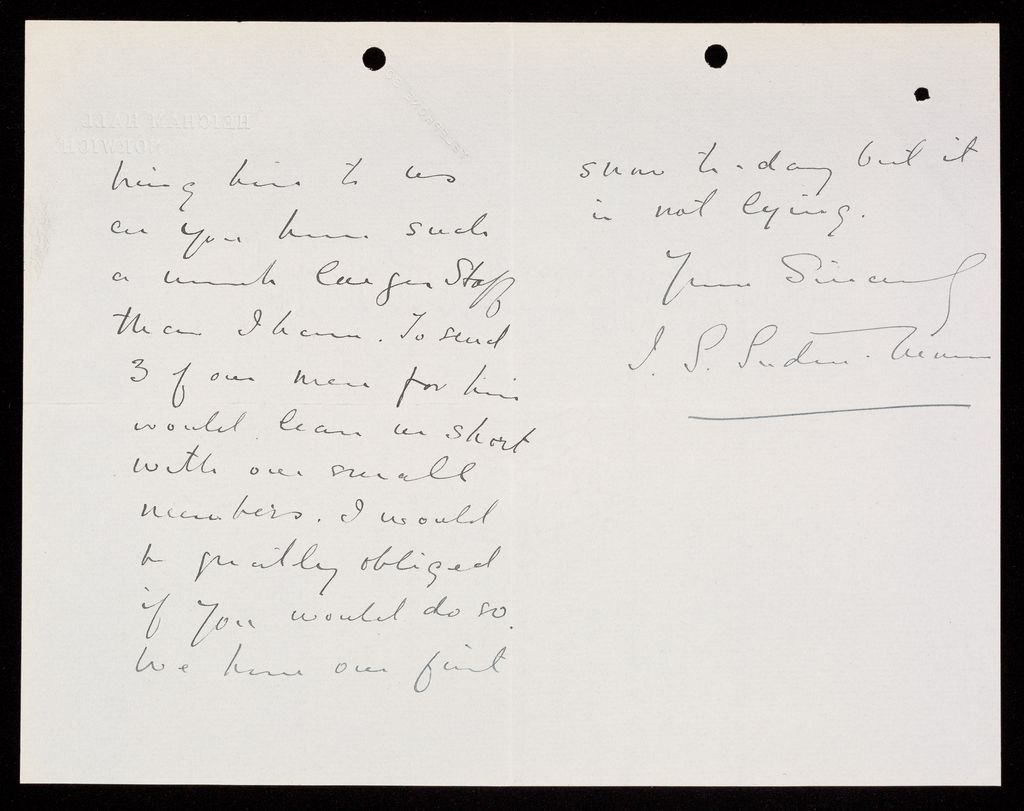 HEIGHAM HALL
NORWICH
bring him to us
as you have such
a much larger Staff
than I have. To send
3 of our men for him
would leave us short
with our small
numbers. I would
be greatly obliged
if you would do so.
We have our first
snow to-day but it
is not lying.
Yours Sincerely
J. S.